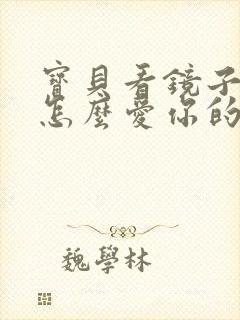 寶貝看鏡子
怎麼愛你的
魏學林